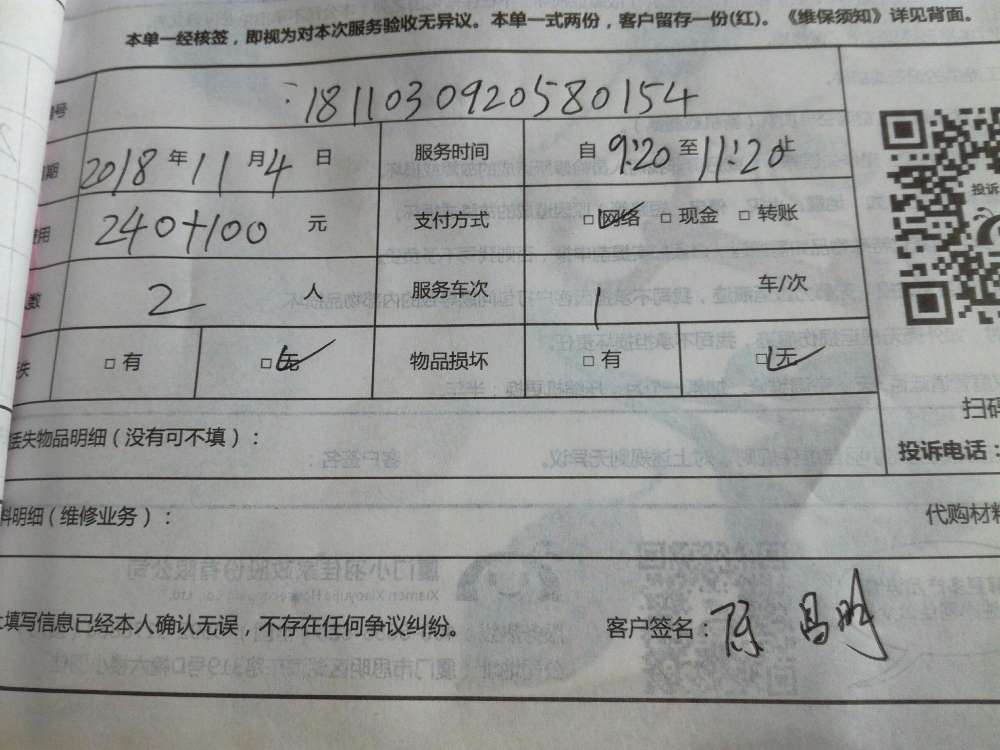 本单一经核签，即视为对本次服务验收无异议。本单一式两份，客户留存一份(红)。《维保须知》详见背面。
号 1811030920580154
期 2018年11月4日 服务时间 自9:20至11:20止
费用 240+100 元 支付方式 □网络 □现金 □转账
数 2 人 服务车次 1 车/次
失 □有 □无 物品损坏 □有 □无
丢失物品明细（没有可不填）：
料明细（维修业务）：
代购材料
投诉
扫码
投诉电话：
上填写信息已经本人确认无误，不存在任何争议纠纷。 客户签名：陈昌明